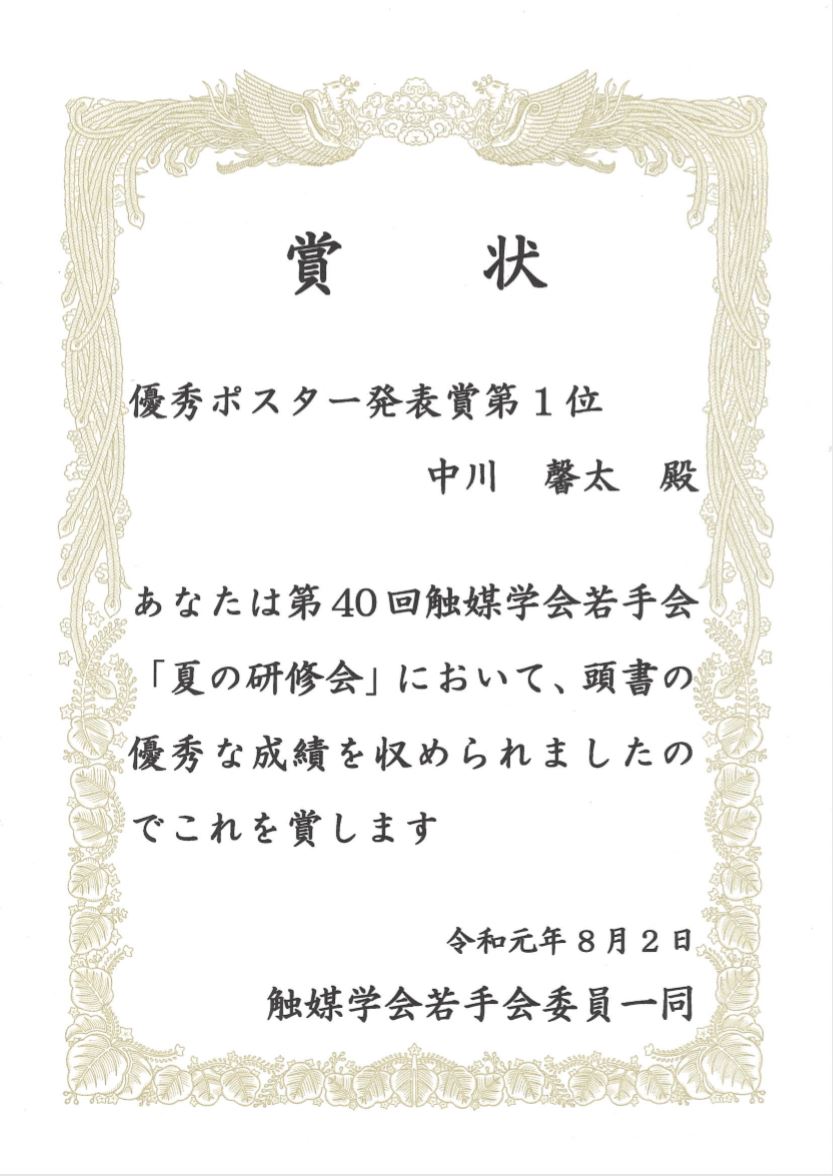 賞　状
優秀ポスター発表賞第1位
中川　馨太　殿
あなたは第40回触媒学会若手会
「夏の研修会」において、頭書の
優秀な成績を収められましたの
でこれを賞します
令和元年8月2日
触媒学会若手会委員一同